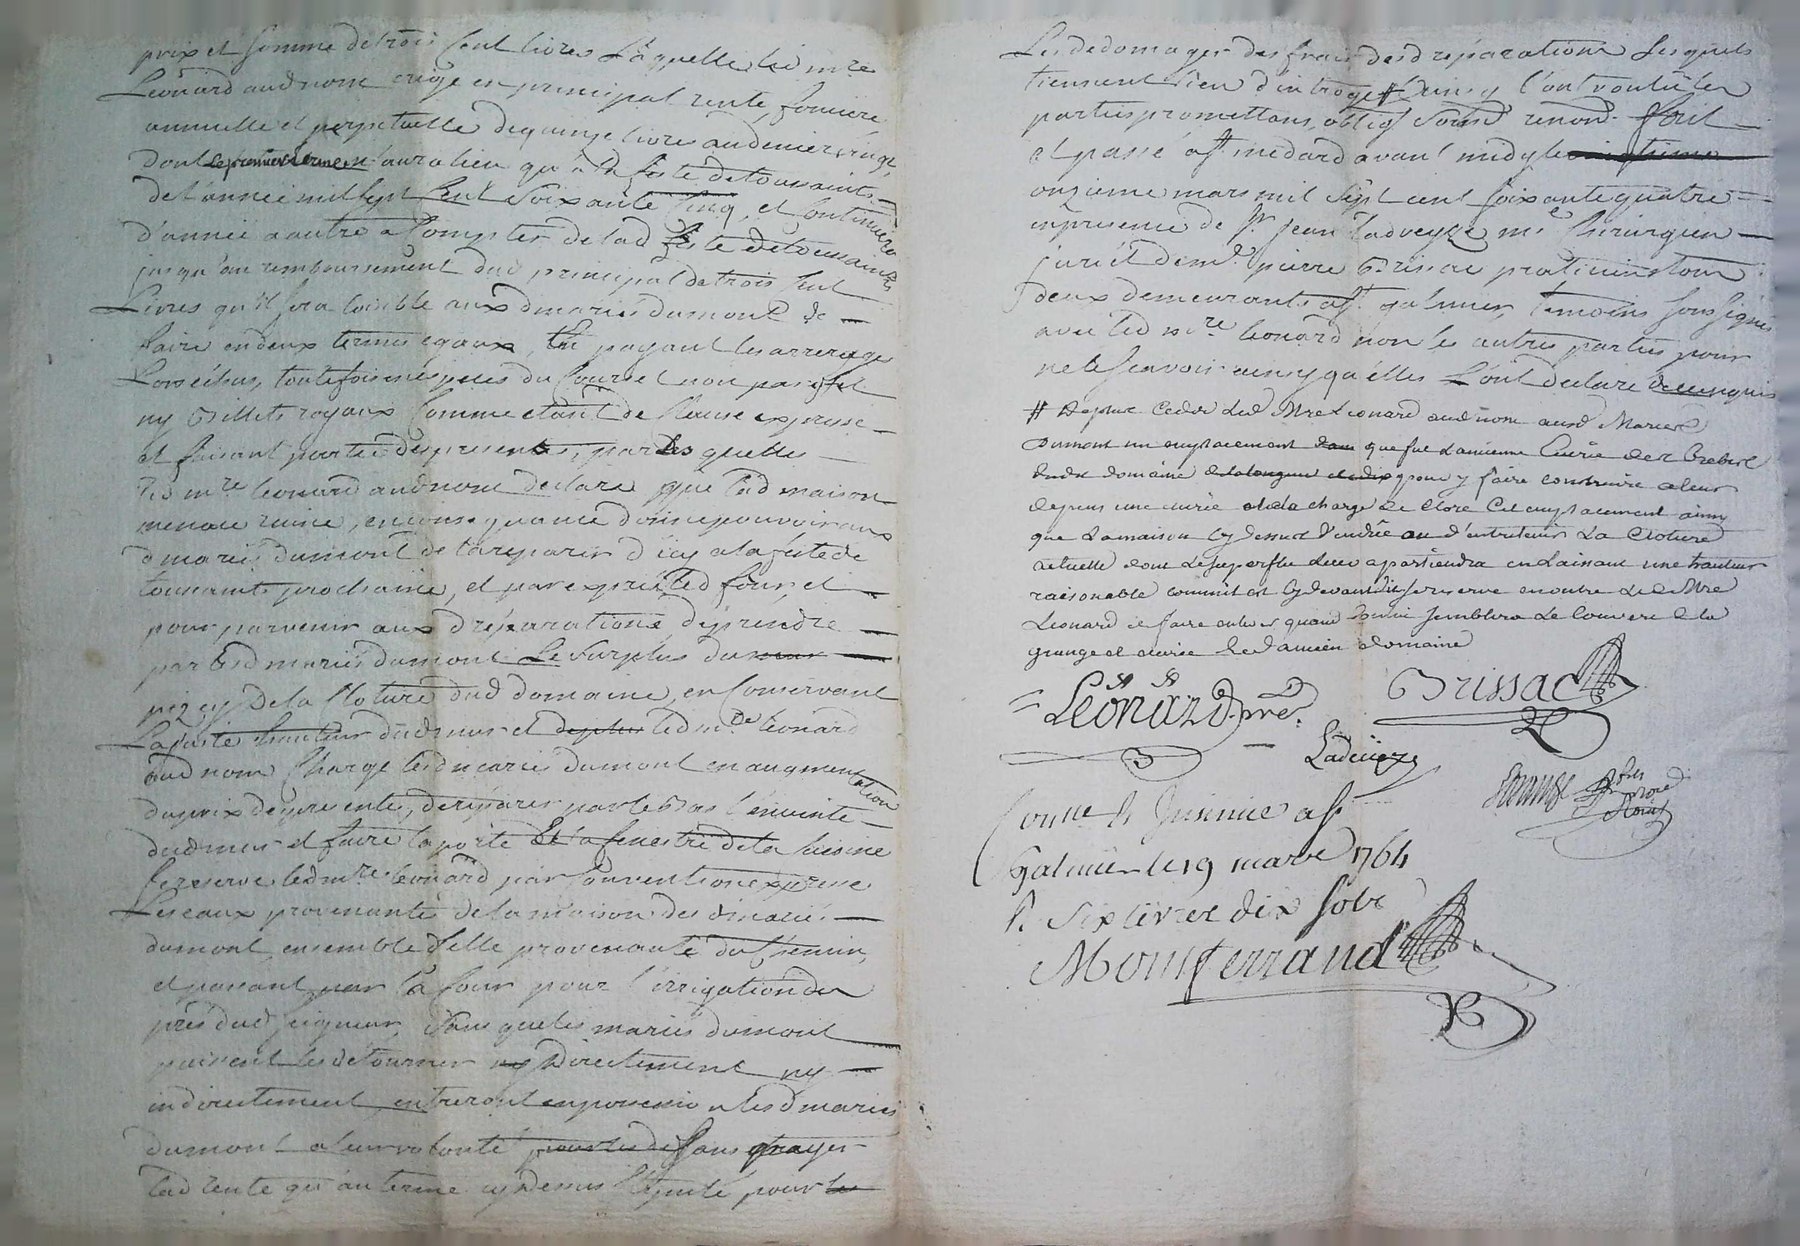 prix et somme de trois cent livres laquelle led mre
Leonard aud nom erige en principal rente, fonciere
annuelle et perpetuelle de quinze livres au denier vingt,
dont le premier terme n'aura lieu qu'a la feste de toussaints
de l'année mil sept cent soixante cinq, et continuera
d'année a autre a compter de lad feste de toussaints
jusqu'au remboursement dud principal de trois cent
Livres qu'il sera loisible aux d mariés dumont de
faire en deux termes egaux, en payant les arrerages
Lors échus, toutefois en espèces du cours et non papier
ny Billets royaux comme etant de clause expresse
et faisant partie des presentes, par lesquelles
led mre leonard aud nom declare que lad maison
menace ruine, en consequance donne pouvoir aux
d mariés dumont de la reparer d'icy a la féste de
toussaints prochaine, et par exprès led four, et
pour parvenir aux d réparations de prendre
par lesd mariés dumont Le surplus du
pizey de la Cloture dud domaine, en conservant
La juste hauteur dud mur et led mre leonard
aud nom Charge lesd mariés dumont en augmentation
du prix des presentes, de réparer par le Bas l'enceinte
dud mur et faire la porte et la fenestre de la
se reserve led mre leonard par convention expresse
Les eaux provenantes de la maison des d mariés
dumont, ensemble celle provenante du chemin,
et passant par la cour pour l'irrigation des
prés dud seigneur, sans que les mariés dumont
puissent les détourner ny directement ny
indirectement, entreront en possession lesd mariés
dumont a leur volonté sans payer
lad rente qu'au terme cy dessus stipulé, pour
Les dedomager des frais desd réparations lesquels
tiennent lieu d'introge # ainsy l'ont voulu les
parties promettans, oblig soum renond. fait
et passé a st medard avant midy le
onzieme mars mil sept cent soixante quatre
en presence de sr jean Ladveyze me Chirurgien
juré et de me pierre Brissac praticien tous
deux demeurants a st galmier, temoins soussignés
avec led mre leonard non les autres parties pour
ne le scavoir ainsy qu'elles l'ont declaré de ce enquis
# de plus cede led Mre Leonard aud nom aud Mariés
Dumont un emplacement que fut l'ancienne Ecurie
dud domaine pour y faire construire a leur
depens une écurie a la charge de clore cet emplacement ainsy
que la maison cy dessus vendüe d'entretenir La Cloture
actuelle dont le superflu leur apartiendra en Laissant une hauteur
raisonable comme est cy devant dit se reserve en outre led Mre
Leonard de faire enlever quand bon luy semblera le couvert de la
grange et écurie de l'ancien domaine
Leonard pre.
Brissac
Ladveyze
Conlle & Insinué a st
Galmier le 19 mars 1764
R. Six livres dix sols
Montferrand